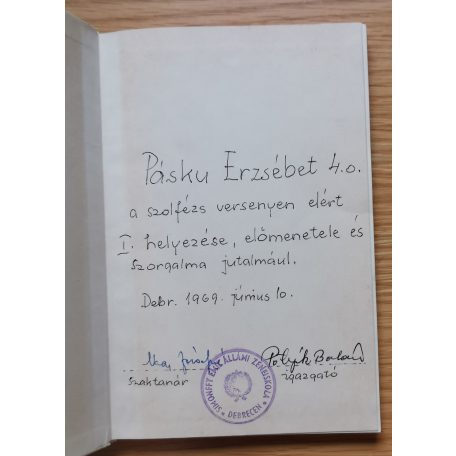 Pásku Erzsébet 4.o.
a szolfézs versenyen elért
I. helyezése, előmenetele és
szorgalma jutalmául.
Debr. 1969. június 10.
szaktanár
igazgató
ÁLLAMI ZENEISKOLA
DEBRECEN